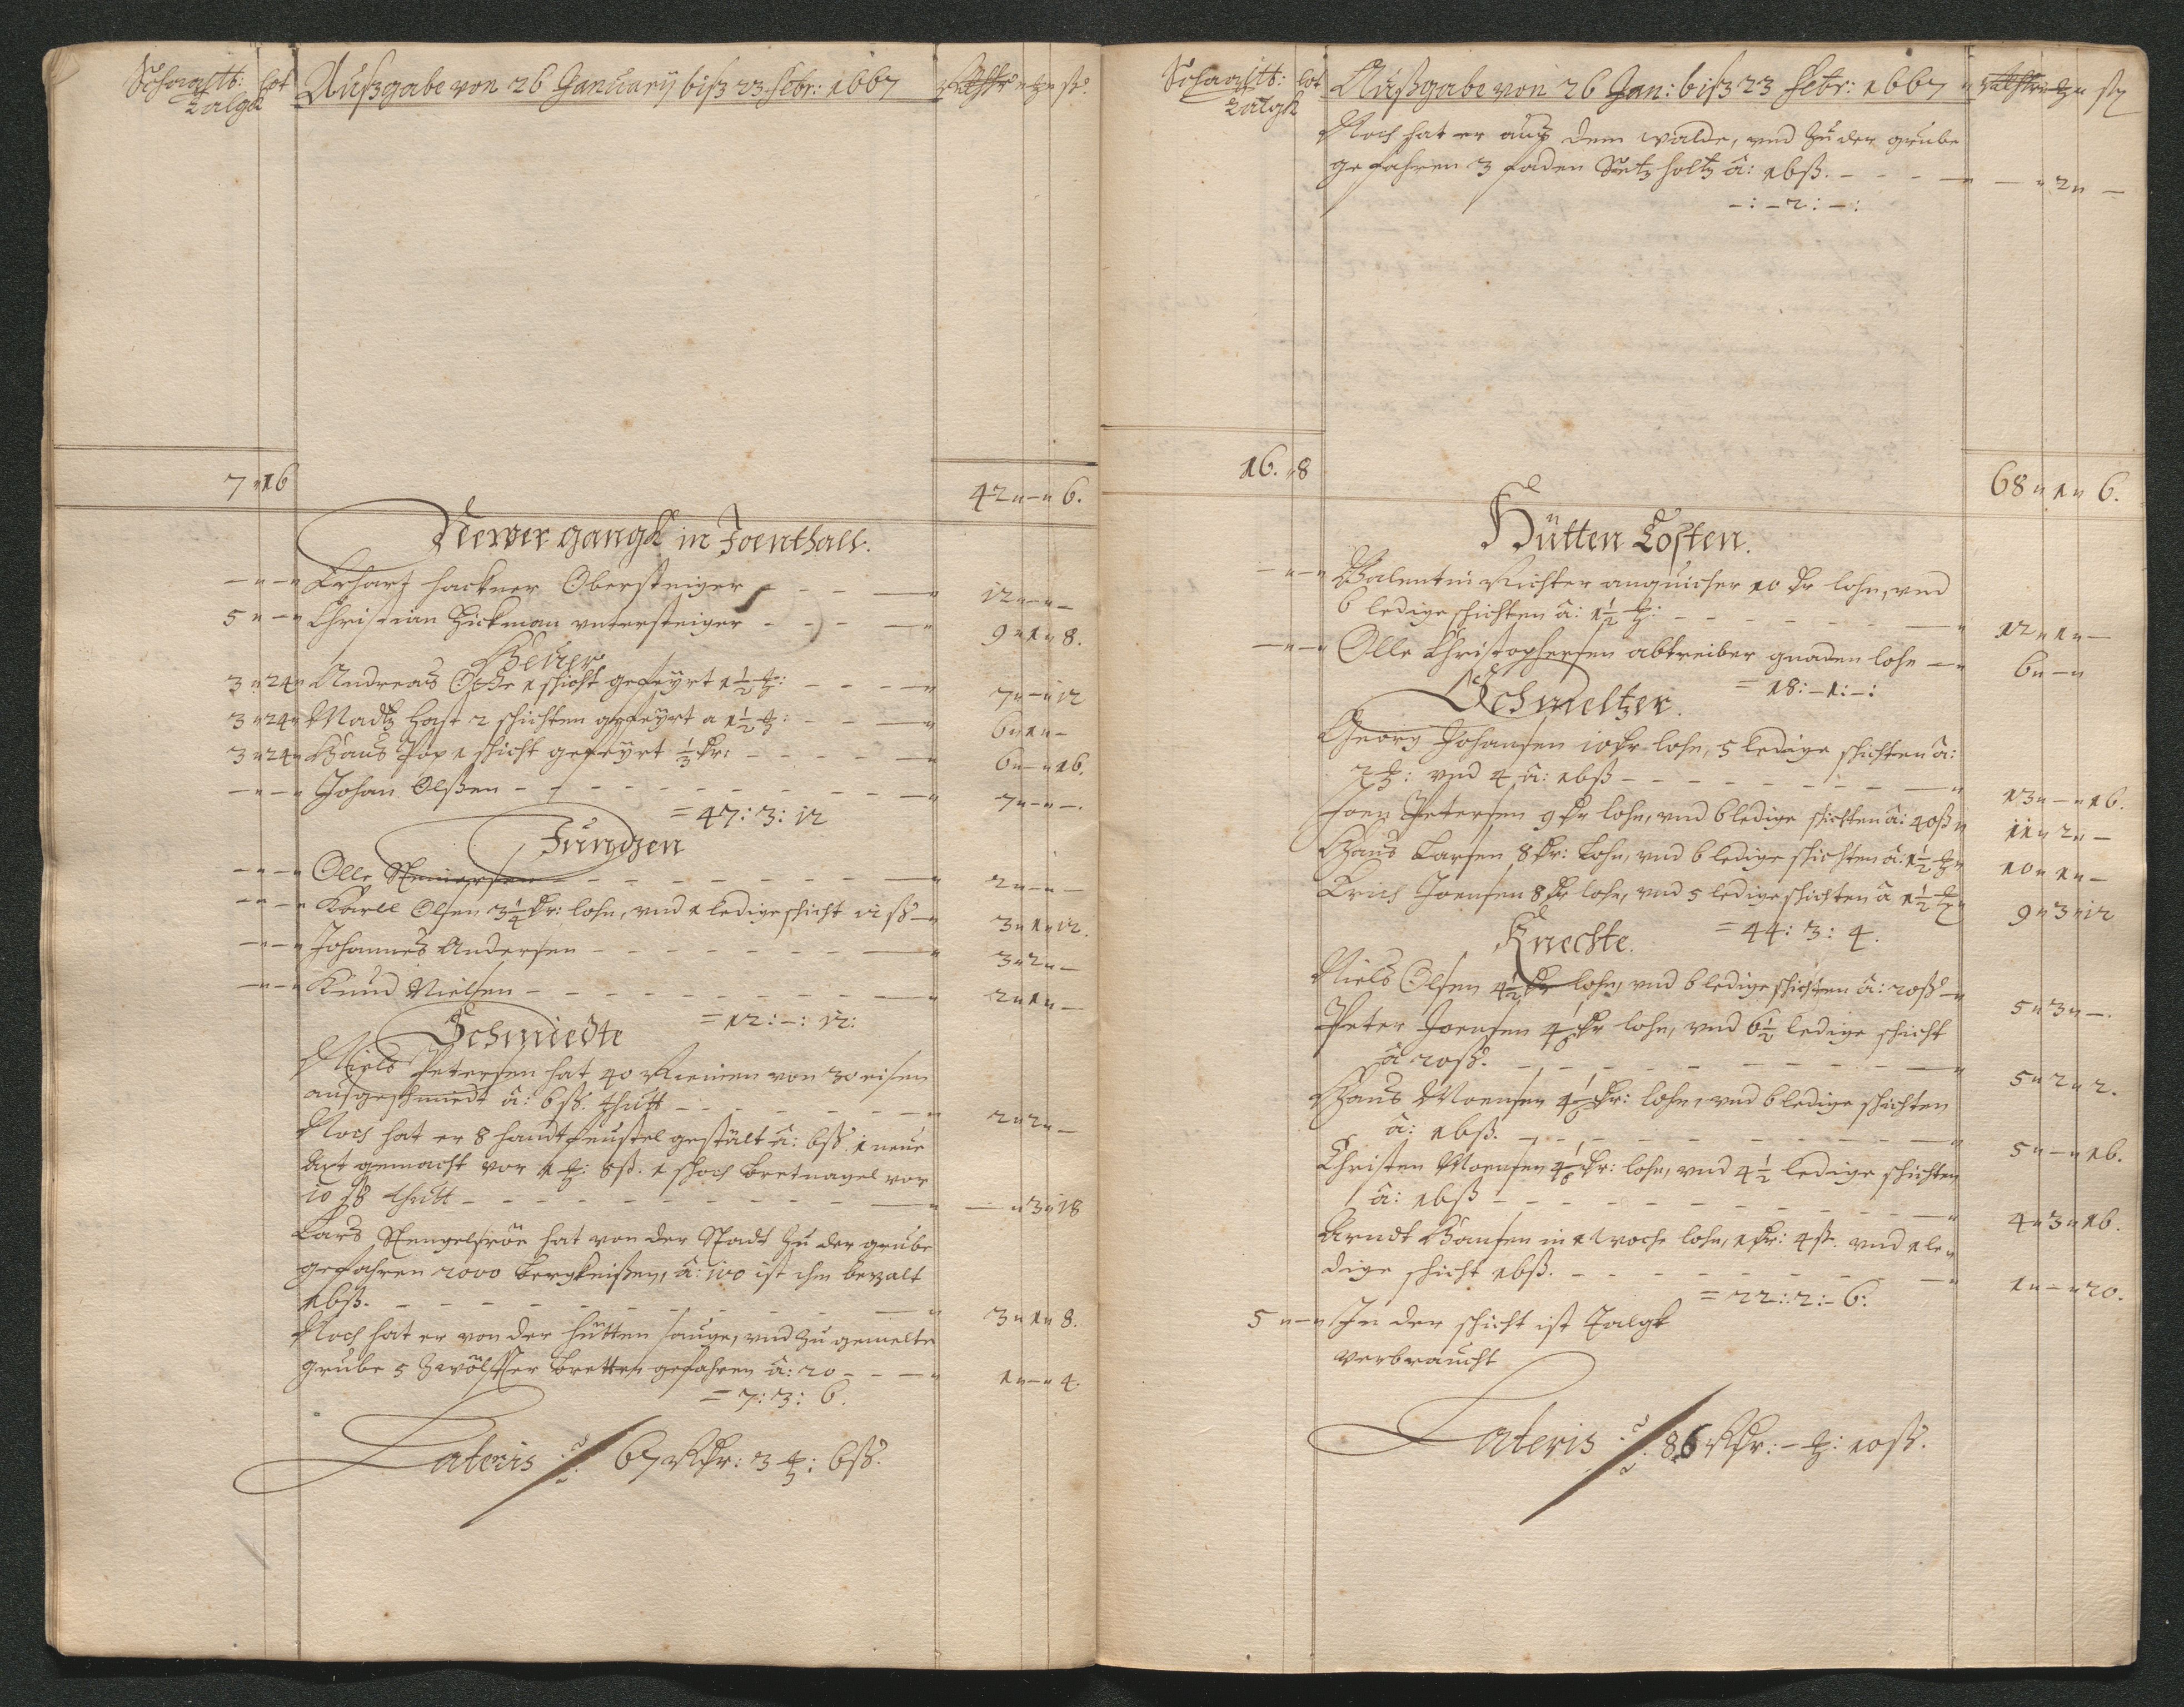 Schaaltt: lot Außgabe von 26 January biß 23 Febr: 1667 ß
Talgk
7 " 16 42 " - " 6.
Newer gangk in Joenthall.
- " - " Erhart Hackner Obersteiger - - - 12 " - " -
5 " - " Christian Zickman untersteiger - - - 9 " 1 " 8.
Heuer
3 " 24 " Andreas Opde 1 schicht gefeyrt 1½ - - - 7 " - " 12
3 " 24 " Madtz Hast 2 schichten gefeyrt a 1½ - - - 6 " 1 " -
3 " 24 " Hans Pop 1 schicht gefeyrt ⅓ dr: - - - 6 " - " 16.
- " - " Johan Olßen - - - 7 " - " -.
= 47: 3: 12
Jungen
- " - " Olle - - - 2 " - " -
- " - " Karll Olsen 3¼ dr: lohn, und 1 ledige schicht 12 ß 3 " 1 " 12.
- " - " Johannes Andersen - - - 3 " 2 " -
- " - " Knud Nielsen - - - 2 " 1 " -
= 12: -: 12:
Schmiedte
Niels Petersen hat 40 Riemen von 30 eisen
außgeschmiedt â: 6 ß. thutt - - - 2 " 2 " -
Noch hat er 8 handtfeustel gestält â: 6 ß. 1 neue
Axt gemacht vor 1 : 8 ß. 1 schock bretnagel vor
10 ß thutt - - - - " 3 " 18
Lars Stengelsröe hat von der Stadt zu der grube
gefahren 2000 bergkeißen, â: 100 ist ihm bezalt
16 ß. - - - 3 " 1 " 8.
Noch hat er von der hütten sauge, und zu gemelte
grube 5 Zwölffer bretter gefahren â: 20 - - - 1 " - " 4.
= 7: 3: 6.
Lateris 67 Rdr: 3 : 6 ß.
Schaaltt: lot Außgabe von 26 Jan: biß 23 Febr: 1667 ß
Talgk
Noch hat er auß dem walde, und zu der grube
gefahren 3 faden Setzholtz â: 16 ß. - - - - " 2 " -
-: - 2: -:
16. " 8 68 " 1 " 6.
Hütten Costen.
- " - " Valentin Richter anquicher 10 dr lohn, und
6 ledige schichten â: 1½ : - - - 12 " 1 " -
- " - " Olle Christophersen abtreiber gnaden lohn - 6 " - "
= 18: - 1: -:
Schmeltzer.
Georg Johansen 10 dr lohn, 5 ledige schichten â:
2 : und 4 â: 16 ß - - - 13 " - " 16.
Joen Petersen 9 dr lohn, und 6 ledige schichten â: 40 ß 11 " 2 " -
Hans Larsen 8 dr: lohn, und 6 ledige schichten â: 1½ 10 " 1 " -
Erich Joensen 8 dr lohn, und 5 ledige schichten â 1½ 9 " 3 " 12
= 44: 3: 4.
Knechte.
Niels Olsen 4½ dr lohn, und 6 ledige schichten â: 20 ß 5 " 3 " -.
Peter Joensen 4⅙ dr lohn, und 6½ ledige schicht
â 20 ß. - - - 5 " 2 " 2.
Hans Moensen 4⅙ dr: lohn, und 6 ledige schichten
â: 16 ß. - - - 5 " - " 16.
Christen Moensen 4⅙ dr: lohn, und 4½ ledige schichten
â: 16 ß - - - 4 " 3 " 16.
Arndt Hansen in 1 woche lohn, 1 dr: 4 ß. und 1 le
dige schicht 16 ß. - - - 1 " - " 20.
= 22: 2: - 6:
5 " - " In der schicht ist Talgk
verbraucht
Lateris 86 Rdr: - : 10 ß.